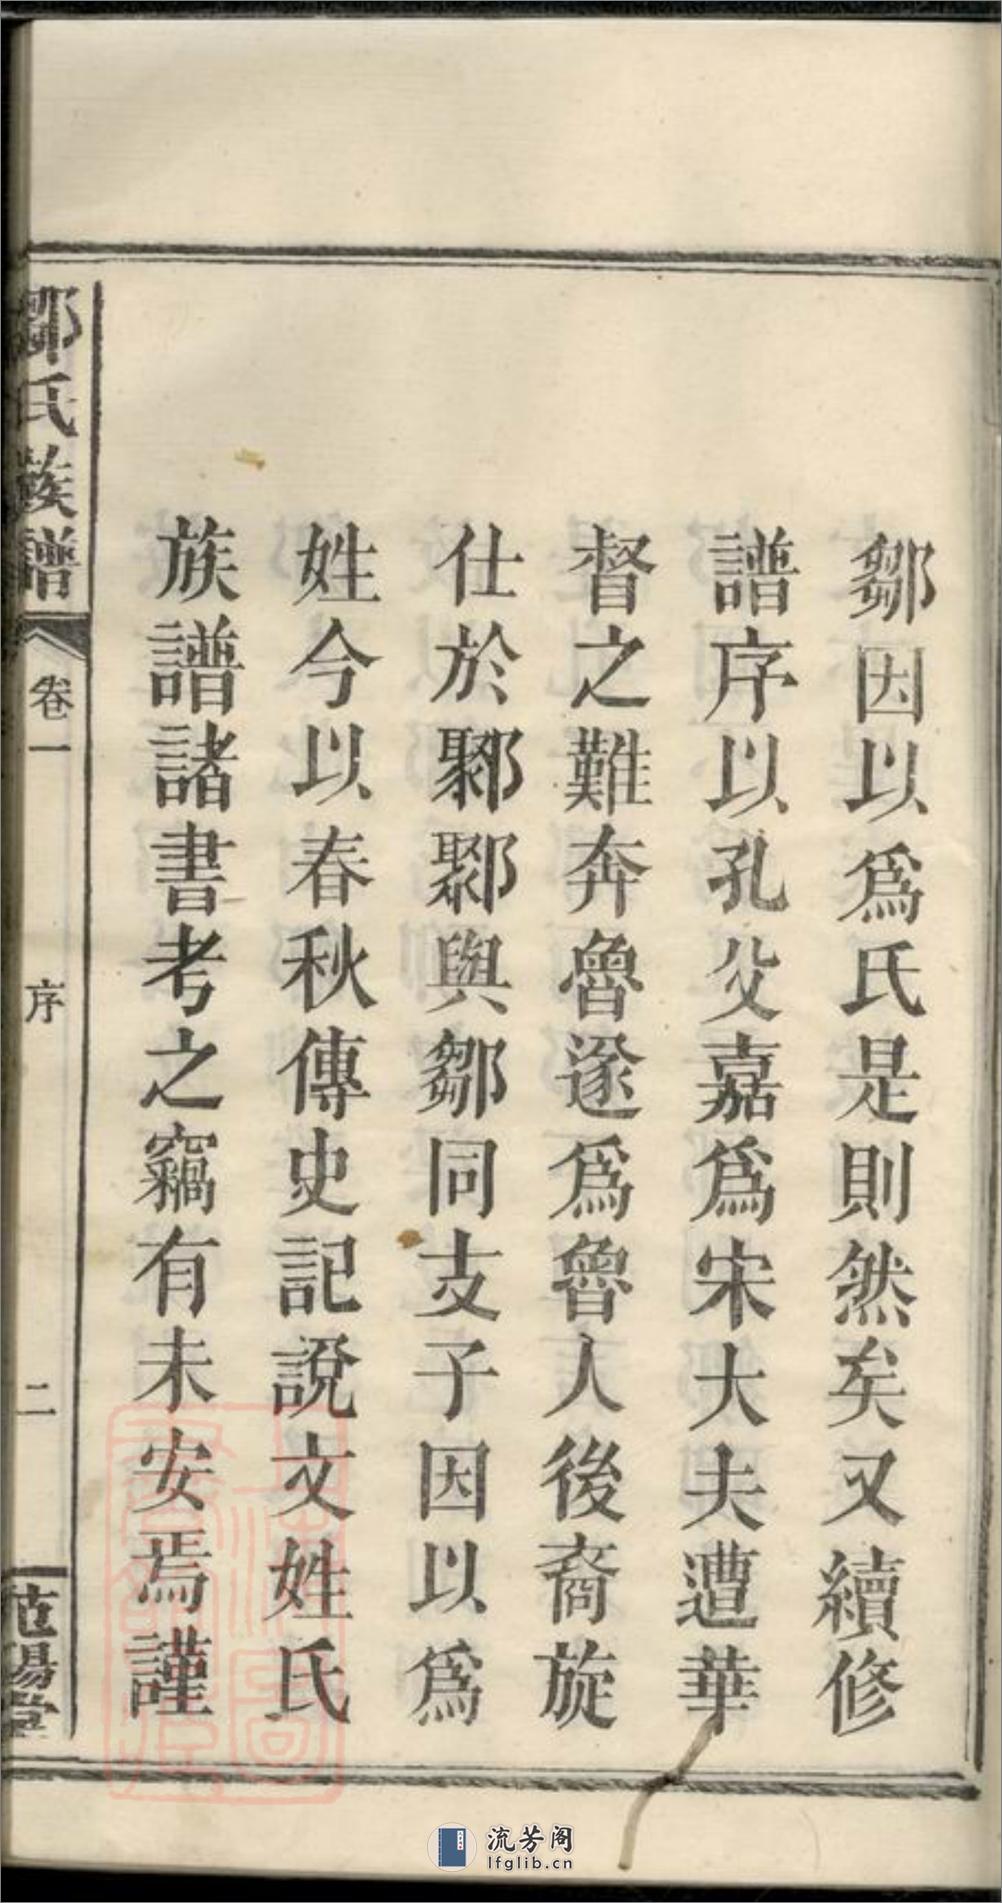 鄒因以爲氏是則然矣又續修
譜序以孔父嘉爲宋大夫遭華
督之難奔魯遂爲魯人後裔旋
仕於郰郰與鄒同支子因以爲
姓今以春秋傳史記說文姓氏
族譜諸書考之竊有未安焉謹
鄒氏族譜
卷一
序
二
范陽堂
流芳阁
lfglib.cn